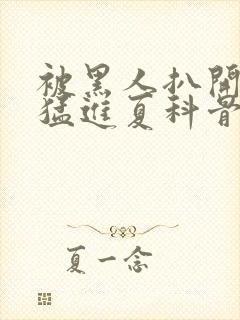 被黑人扒開
猛進夏科骨
夏一念